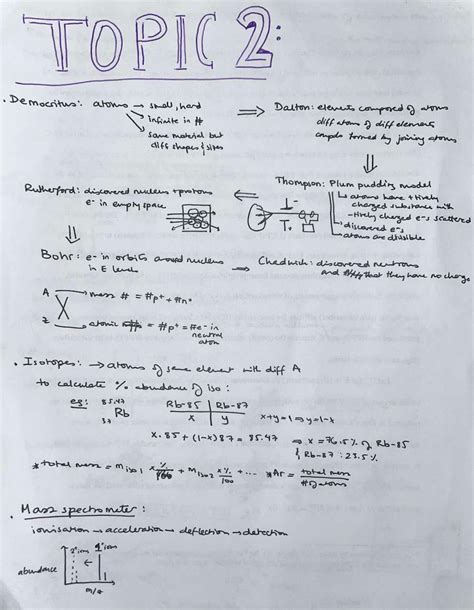 TOPIC 2:
• Democritus: atoms → small, hard ⇒ Dalton: elements composed of atoms
↘ infinite in # diff atoms of diff elements
↘ same material but cmpds formed by joining atoms
diff shapes & sizes
Rutherford: discovered nucleus + protons ⇐ Thompson: Plum pudding model
e- in empty space ↳ atoms have +tively
charged substance with
-tively charged e-s scattered
→ discovered e-s
→ atoms are divisible
Bohr: e- in orbits around nucleus → Chadwich: discovered neutrons
in E levels and that they have no charge
A → mass # = #p+ + #n°
Z → atomic # = #p+ = #e- in
neutral
atom
• Isotopes: → atoms of same element with diff A
to calculate % abundance of iso:
eg: 85.47 Rb-85 | Rb-87
Rb x | y x+y=1 ⇒ y=1-x
37
x.85 + (1-x)87 = 85.47 ⇒ x = 76.5% of Rb-85
& Rb-87: 23.5%
* total mass = m iso1 x %/100 + m iso2 x %/100 + ... * Ar = total mass / # of atoms
• Mass spectrometer:
ionisation → acceleration → deflection → detection
2+ions 1+ions
abundance
m/q